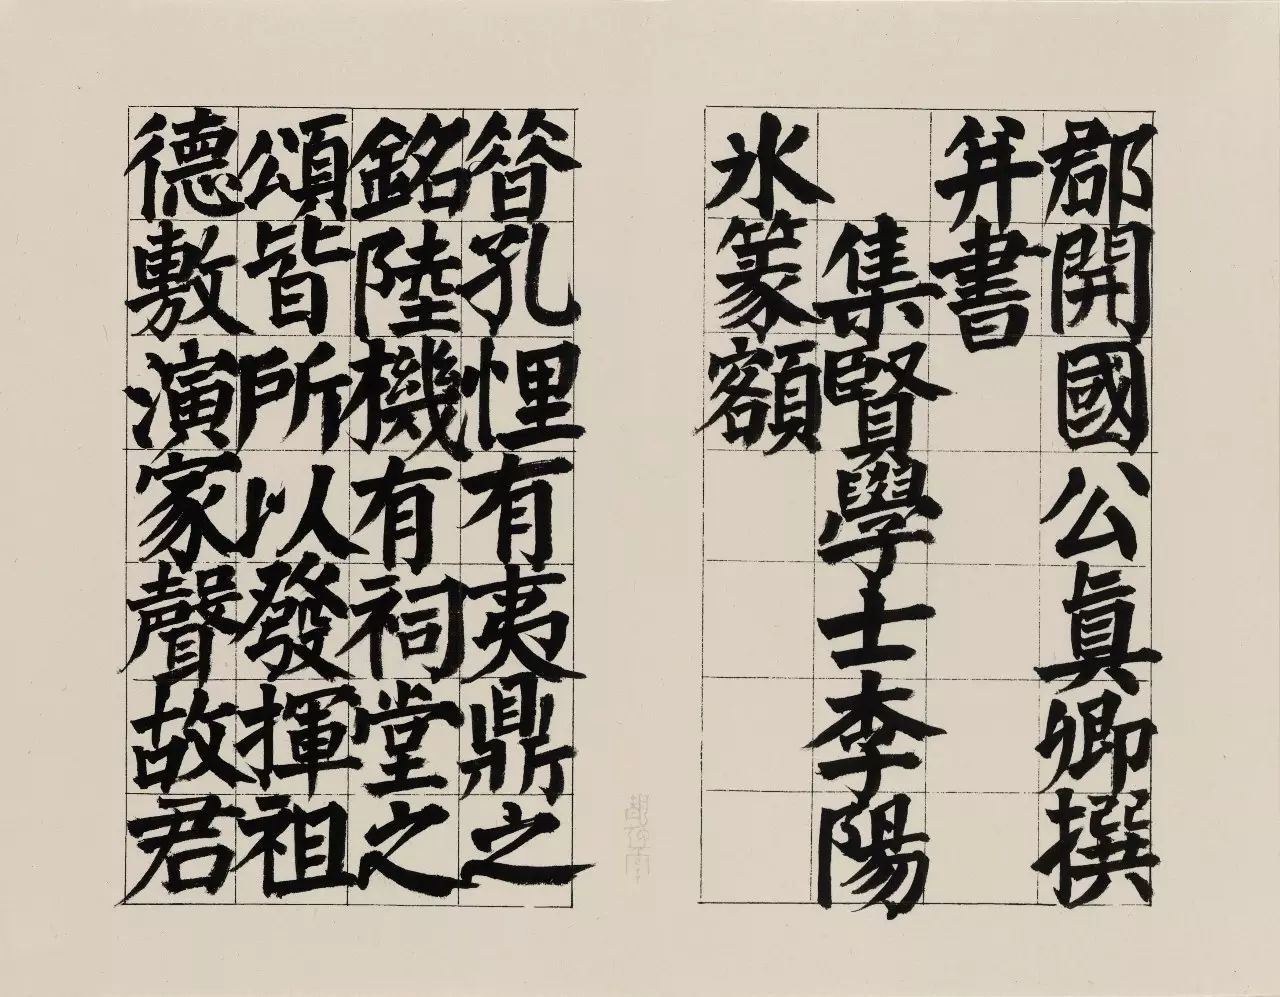 郡開國公眞卿撰
并書
集賢學士李陽
冰篆額
昔孔悝有夷鼎之
銘陸機有祠堂之
頌皆所以發揮祖
德敷演家聲故君